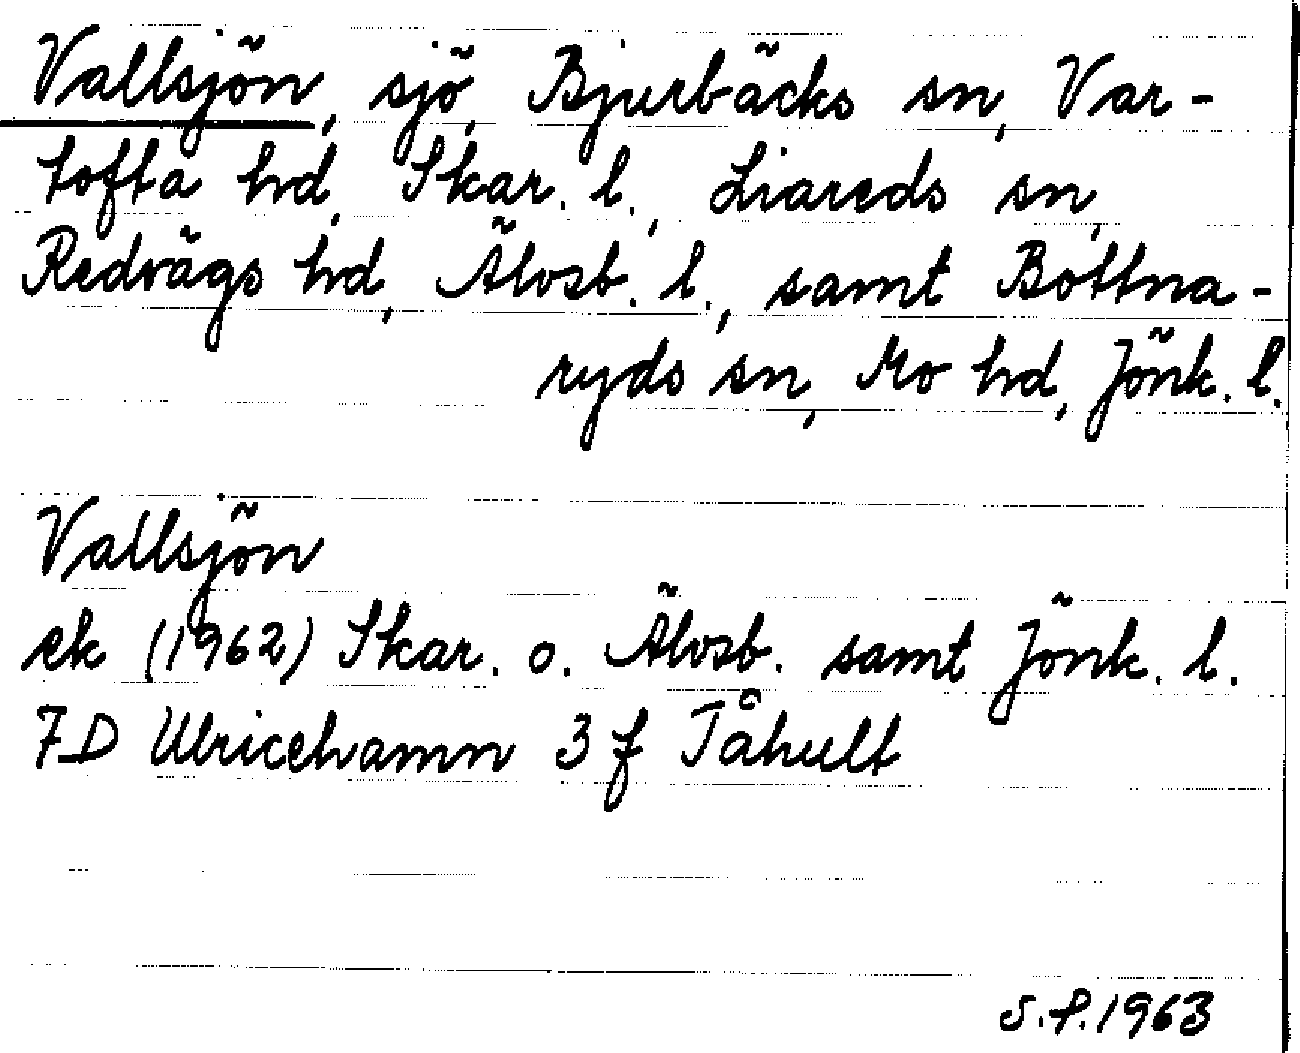 Vallsjön, sjö, Bjurbäcks sn, Var-
tofta hd, Skar. l., Liareds sn,
Redvägs hd, Älvsb. l., samt Bottna-
ryds sn, Mo hd, Jönk. l.
Vallsjön
ek (1962) Skar. o. Älvsb. samt Jönk. l.
7D Ulricehamn 3 f Tåhult
S.F. 1963